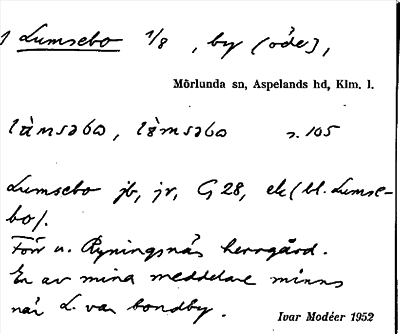 1 Lumsebo 1/8 , by (öde),
Mörlunda sn, Aspelands hd, Klm. l.
làmsəbo, lòmsəbo s. 105
Lumsebo jb, jr, G 28, ek (Ll. Lumse-
bo).
Förr u. Ryningsnäs herrgård.
En av mina meddelare minns
när L. var bondby.
Ivar Modéer 1952